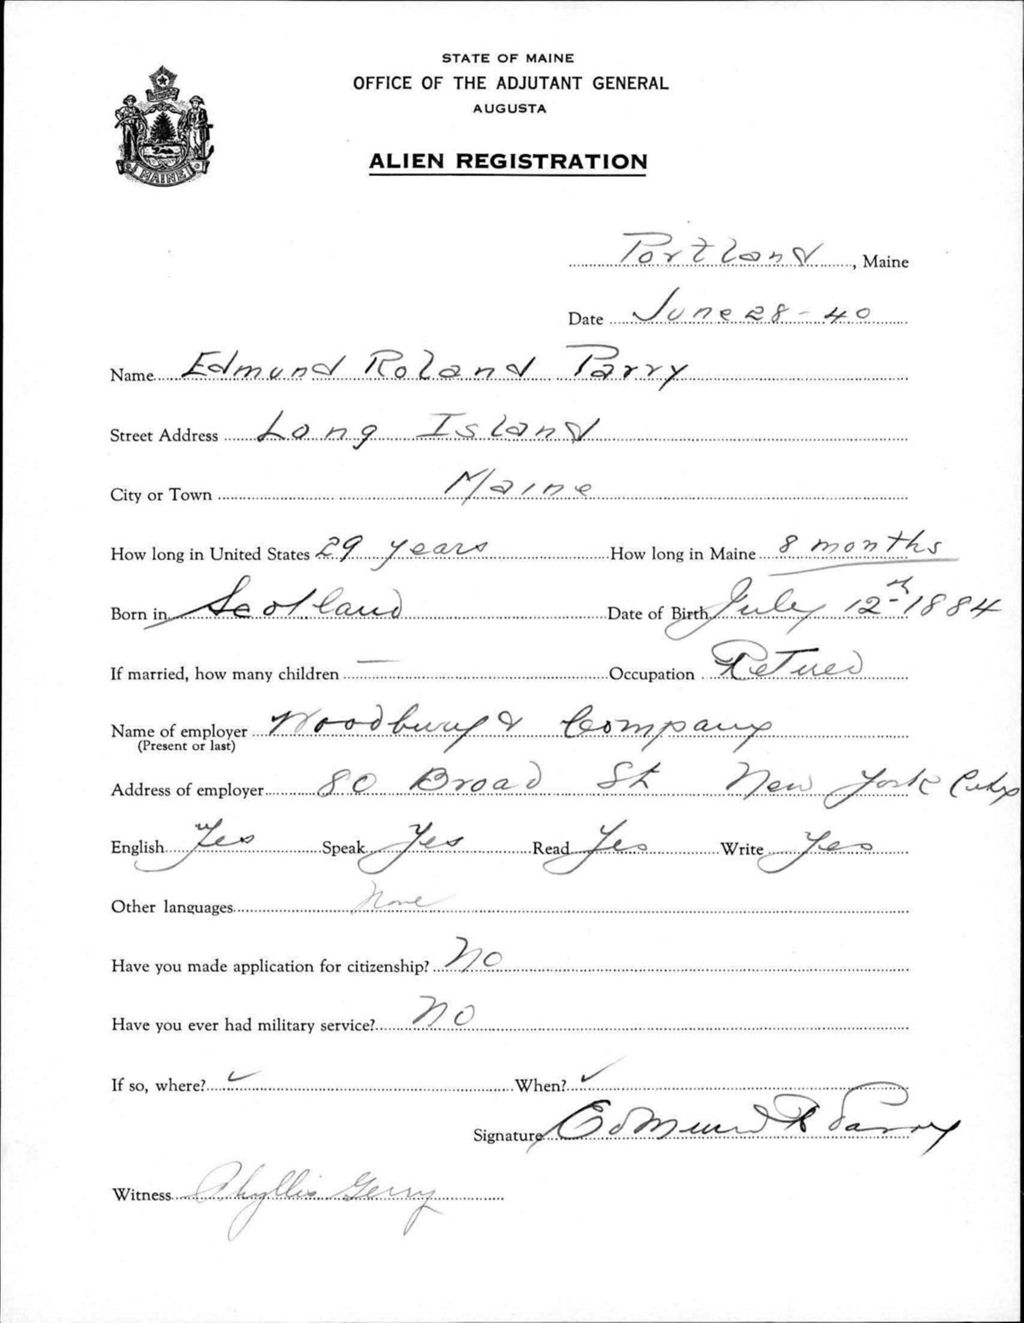 STATE OF MAINE
OFFICE OF THE ADJUTANT GENERAL
AUGUSTA
ALIEN REGISTRATION
MAINE
Portland, Maine
Date June 28-40
Name Edmund Roland Parry
Street Address Long Island
City or Town Maine
How long in United States 29 years How long in Maine 8 months
Born in Scotland Date of Birth July 12th 1884
If married, how many children — Occupation Retired
Name of employer Woodbury & Company
(Present or last)
Address of employer 80 Broad St New York City
English Yes Speak Yes Read Yes Write Yes
Other languages None
Have you made application for citizenship? No
Have you ever had military service? No
If so, where? ✓ When? ✓
Signature Edmund R Parry
Witness Phyllis Gerry